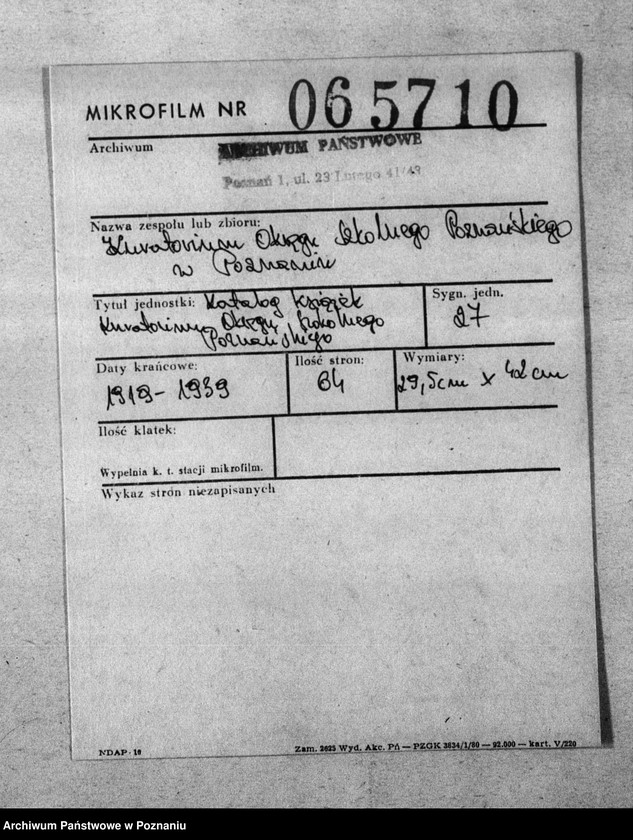 MIKROFILM NR 065710
Archiwum
ARCHIWUM PAŃSTWOWE
Poznań 1, ul. 23 Lutego 41/43
Nazwa zespołu lub zbioru:
Kuratorium Okręgu Szkolnego Poznańskiego
w Poznaniu
Tytuł jednostki: Katalog książek
Kuratorium Okręgu Szkolnego
Poznańskiego
Sygn. jedn.
27
Daty krańcowe:
1919-1939
Ilość stron:
64
Wymiary:
29,5cm x 42cm
Ilość klatek:
Wypełnia k. t. stacji mikrofilm.
Wykaz stron niezapisanych
NDAP-18
Zam. 2625 Wyd. Akc. Pń — PZGK 3834/1/80 — 92.000 — kart. V/220
Archiwum Państwowe w Poznaniu